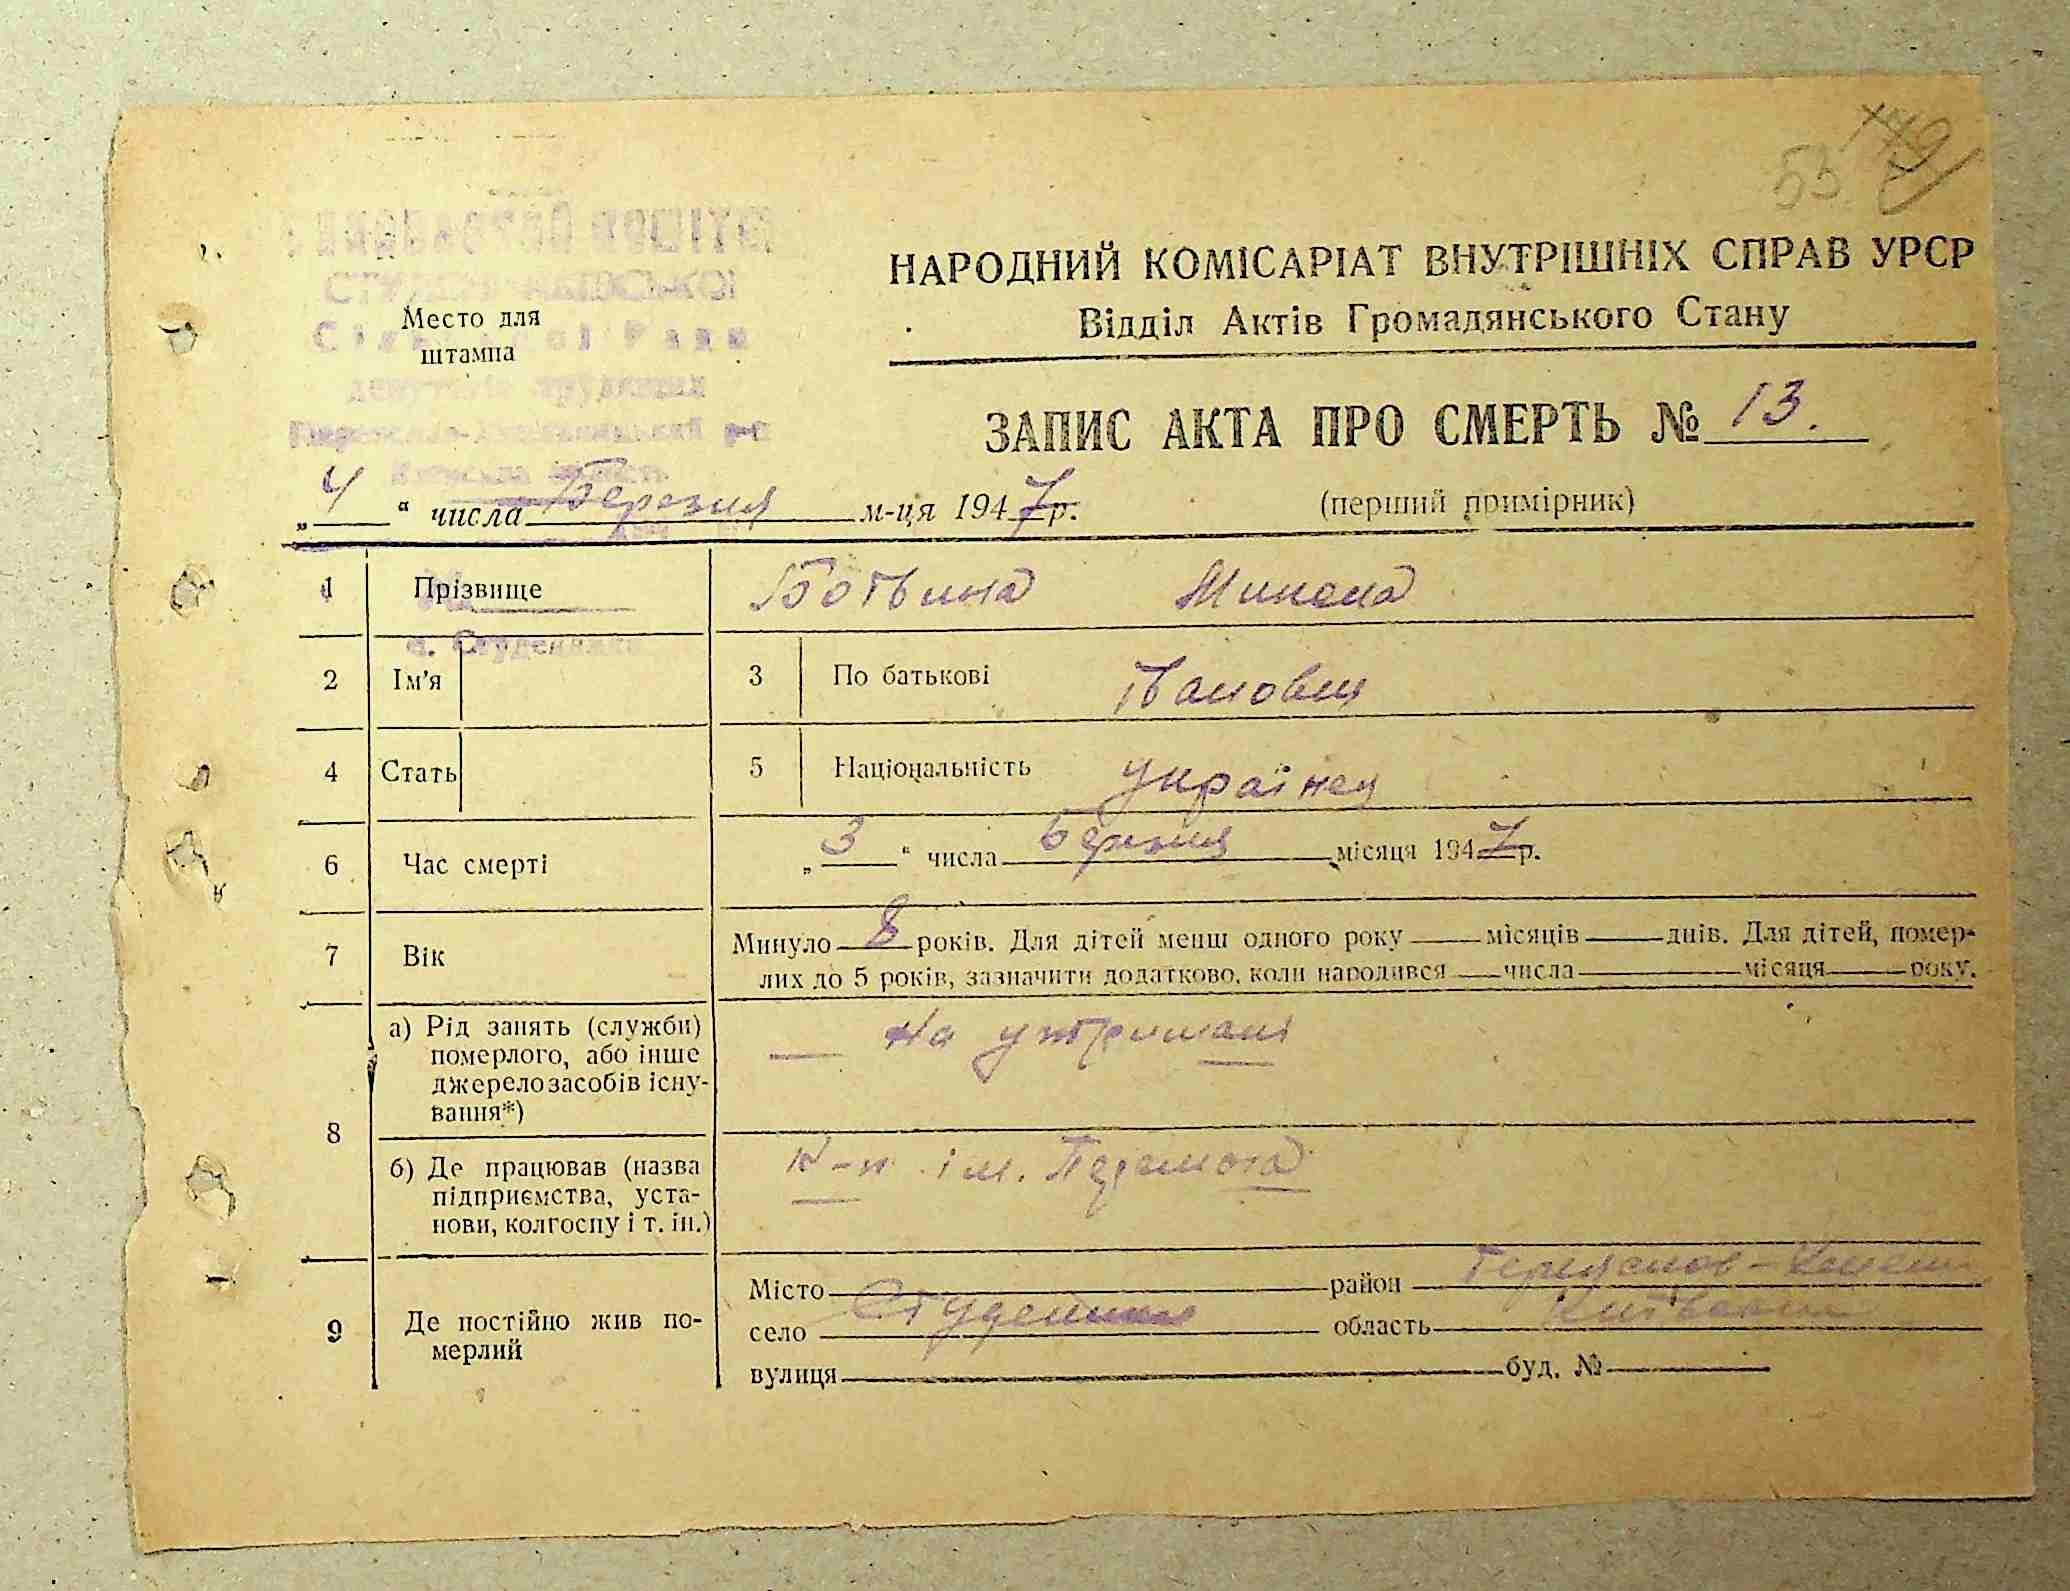 179
53
ВИКОНАВЧИЙ КОМІТЕТ
СТУДЕНИКІВСЬКОЇ
Сільської Ради
депутатів трудящих
Переяслав-Хмельницький р-н
Київська область
с. Студеники
Место для
штампа
НАРОДНИЙ КОМІСАРІАТ ВНУТРІШНІХ СПРАВ УРСР
Відділ Актів Громадянського Стану
ЗАПИС АКТА ПРО СМЕРТЬ № 13.
„4“ числа Березня м-ця 1947р. (перший примірник)
1 Прізвище Ботвина Микола
2 Ім'я 3 По батькові Іванович
4 Стать 5 Національність українец
6 Час смерті „3“ числа березня місяця 1947р.
7 Вік Минуло 8 років. Для дітей менш одного року місяців днів. Для дітей, помер-
лих до 5 років, зазначити додатково, коли народився числа місяця року.
8 а) Рід занять (служби)
померлого, або інше
джерело засобів існу-
вання*)
на утримані
б) Де працював (назва
підприємства, уста-
нови, колгоспу і т. ін.)
К-п ім. Перемога
9 Де постійно жив по-
мерлий
Місто район Переяслов-Хмельн
село Студеники область Київська
вулиця буд. №